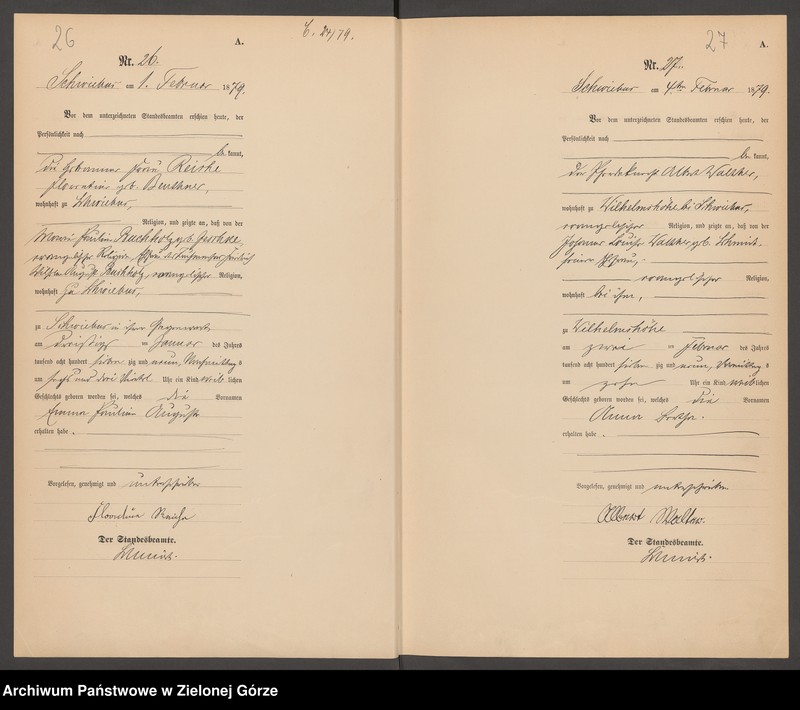 26
A.
C. 24/79.
Nr. 26.
Schwiebus am 1. Februar 1879.
Vor dem unterzeichneten Standesbeamten erschien heute, der
Persönlichkeit nach
be kannt,
die Hebamme Frau Reiche
Florentine geb.
wohnhaft zu Schwiebus,
Religion, und zeigte an, daß von der
Marie Pauline Buchholz geb.
evangelischer Religion, Ehefrau des
Wilhelm August Buchholz, evangelischer Religion,
wohnhaft zu Schwiebus,
zu Schwiebus in ihrer Gegenwart
am Januar des Jahres
tausend acht hundert sieben zig und neun, Nachmittag s
um sechs und drei Viertel Uhr ein Kind weib lichen
Geschlechts geboren worden sei, welches die Vornamen
Emma Pauline Auguste
erhalten habe.
Vorgelesen, genehmigt und unterschrieben
Florentine Reiche
Der Standesbeamte.
27
A.
Nr. 27.
Schwiebus am 4ten Februar 1879.
Vor dem unterzeichneten Standesbeamten erschien heute, der
Persönlichkeit nach
be kannt,
der Pferdeknecht Albert Walther,
wohnhaft zu Wilhelmshöhe bei Schwiebus,
evangelischer Religion, und zeigte an, daß von der
Johanne Louise Walther, geb. Schmidt,
seiner Ehefrau,
evangelischer Religion,
wohnhaft bei ihm,
zu Wilhelmshöhe
am zwei ten Februar des Jahres
tausend acht hundert sieben zig und neun, Vormittag s
um zehn Uhr ein Kind weib lichen
Geschlechts geboren worden sei, welches die Vornamen
Anna Bertha.
erhalten habe.
Vorgelesen, genehmigt und unterschrieben.
Albert Walter.
Der Standesbeamte.
Archiwum Państwowe w Zielonej Górze